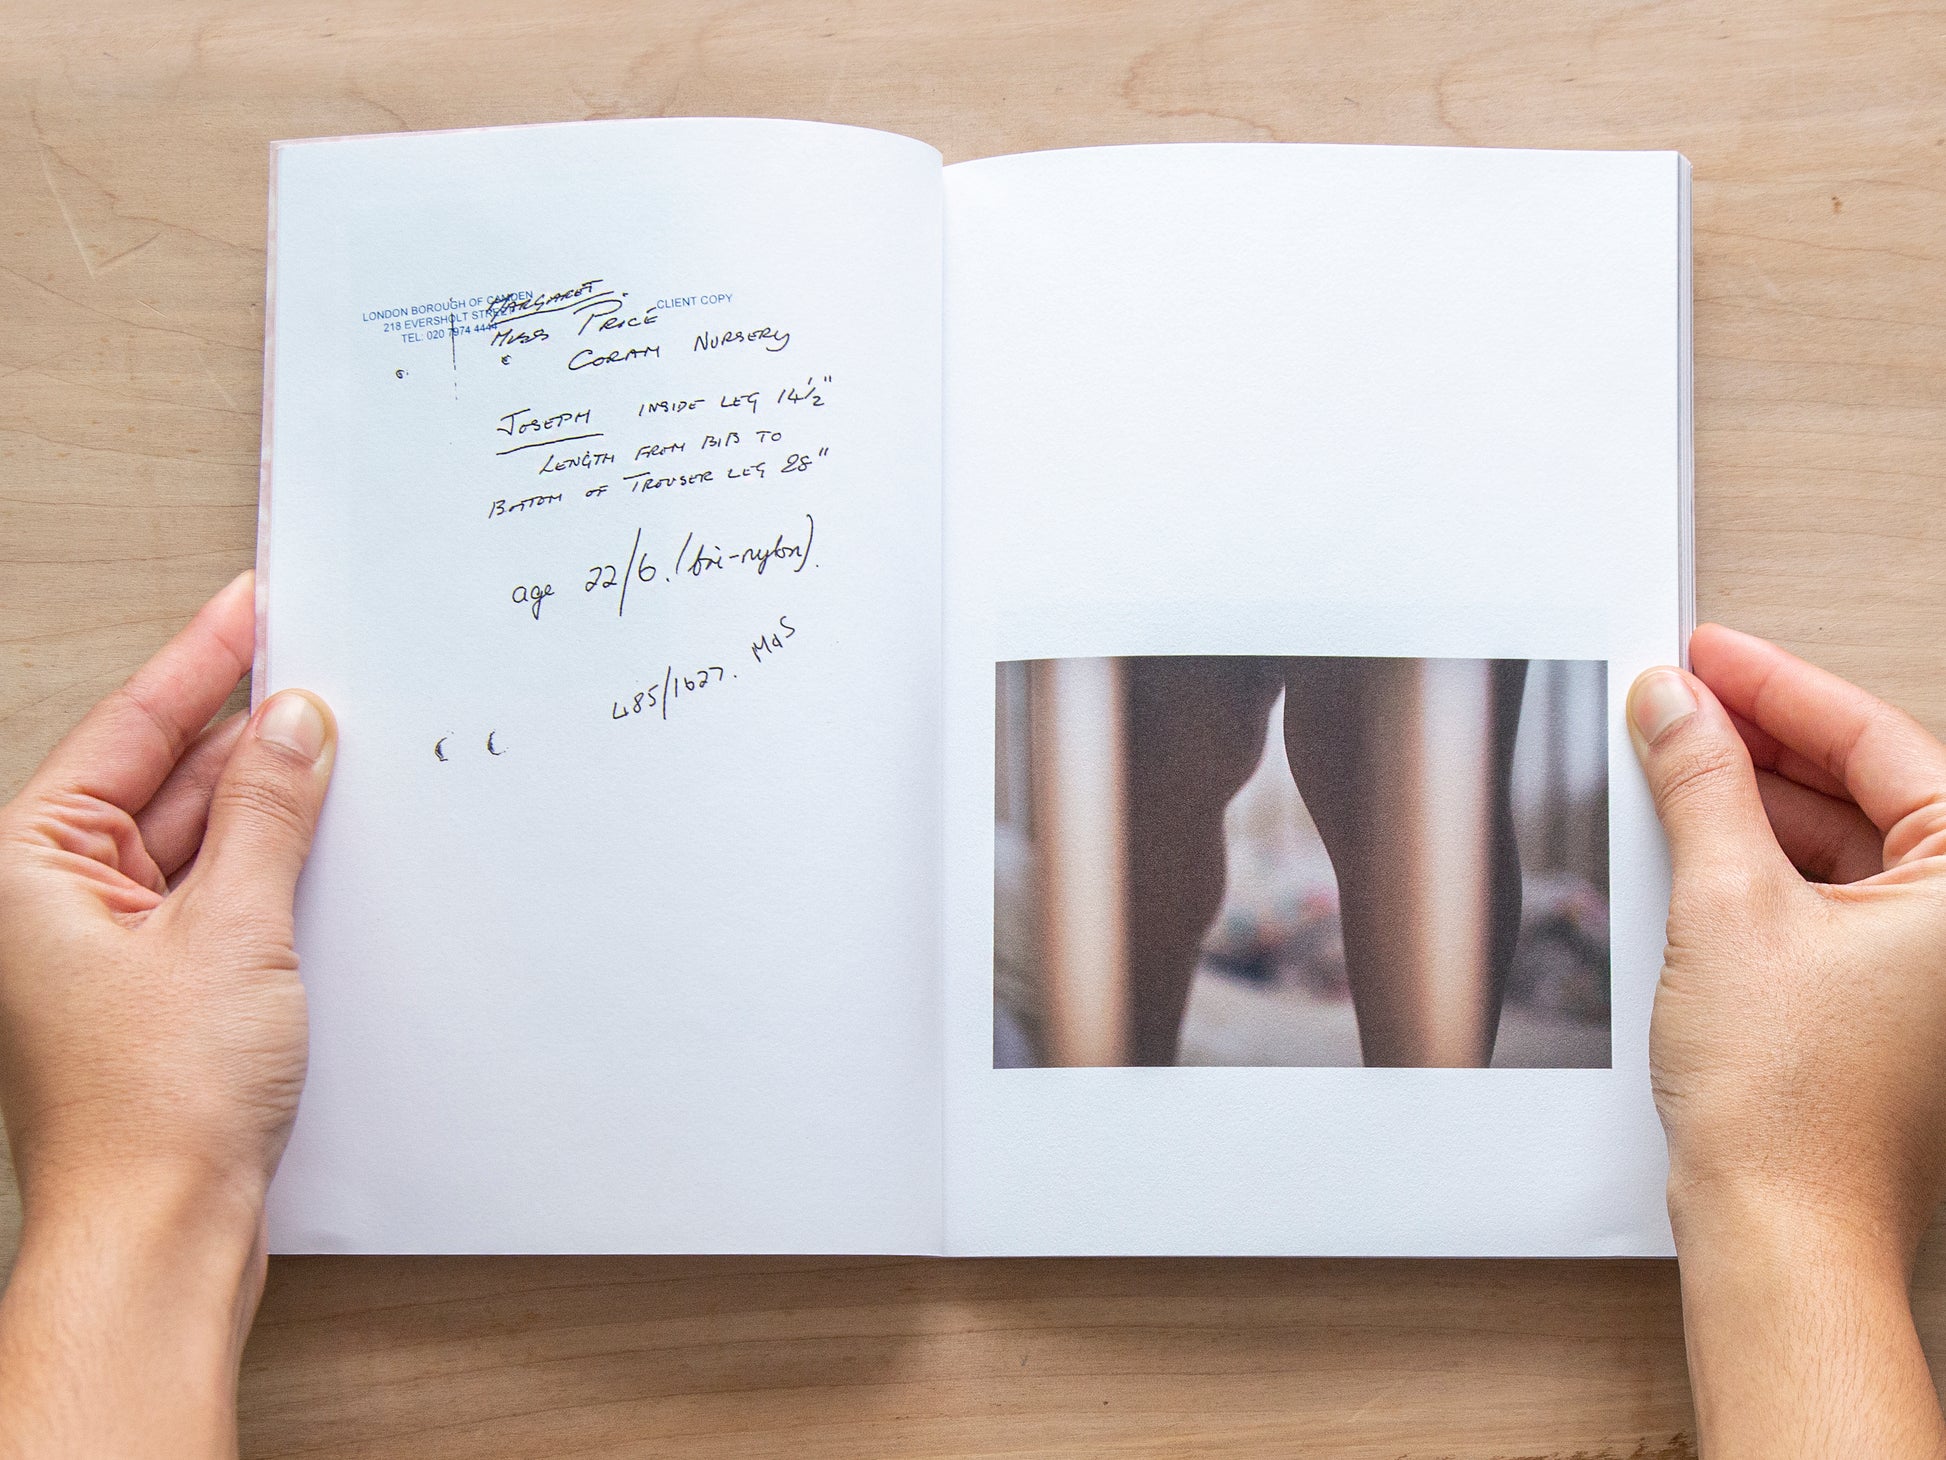 LONDON BOROUGH OF CAMDEN
218 EVERSHOLT STREET
TEL: 020 7974 4444
CLIENT COPY
MARGARET
MISS PRICE
CORAM NURSERY
JOSEPH INSIDE LEG 14½"
LENGTH FROM BIB TO
BOTTOM OF TROUSER LEG 28"
age 22/6. (bri-nylon).
485/1627. M&S